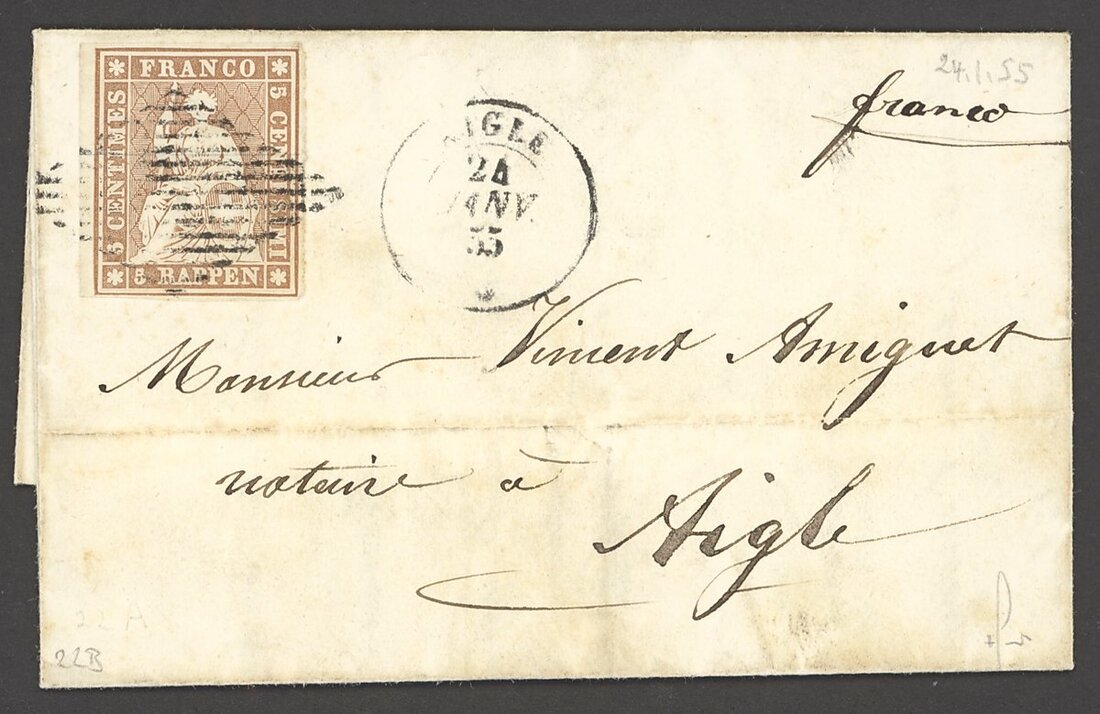 FRANCO
5 CENTIMES
5 CENTESIMI
5 RAPPEN
AIGLE
24
JANV.
55
24.1.55
franco
Monsieur Vincent Amiguet
notaire à
Aigle
22A
22B